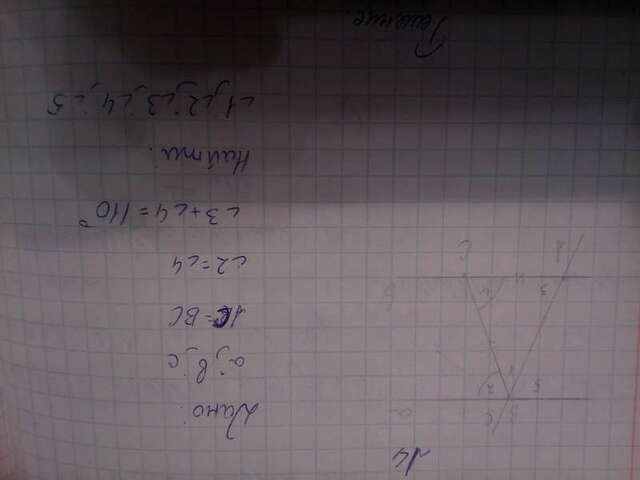 14
Дано:
a; b; c
AC = BC
∠2 = ∠4
∠3 + ∠4 = 110°
Найти:
∠1; ∠2; ∠3; ∠4; ∠5
Решение.
B
c
5
1
2
a
3
4
A
C
b